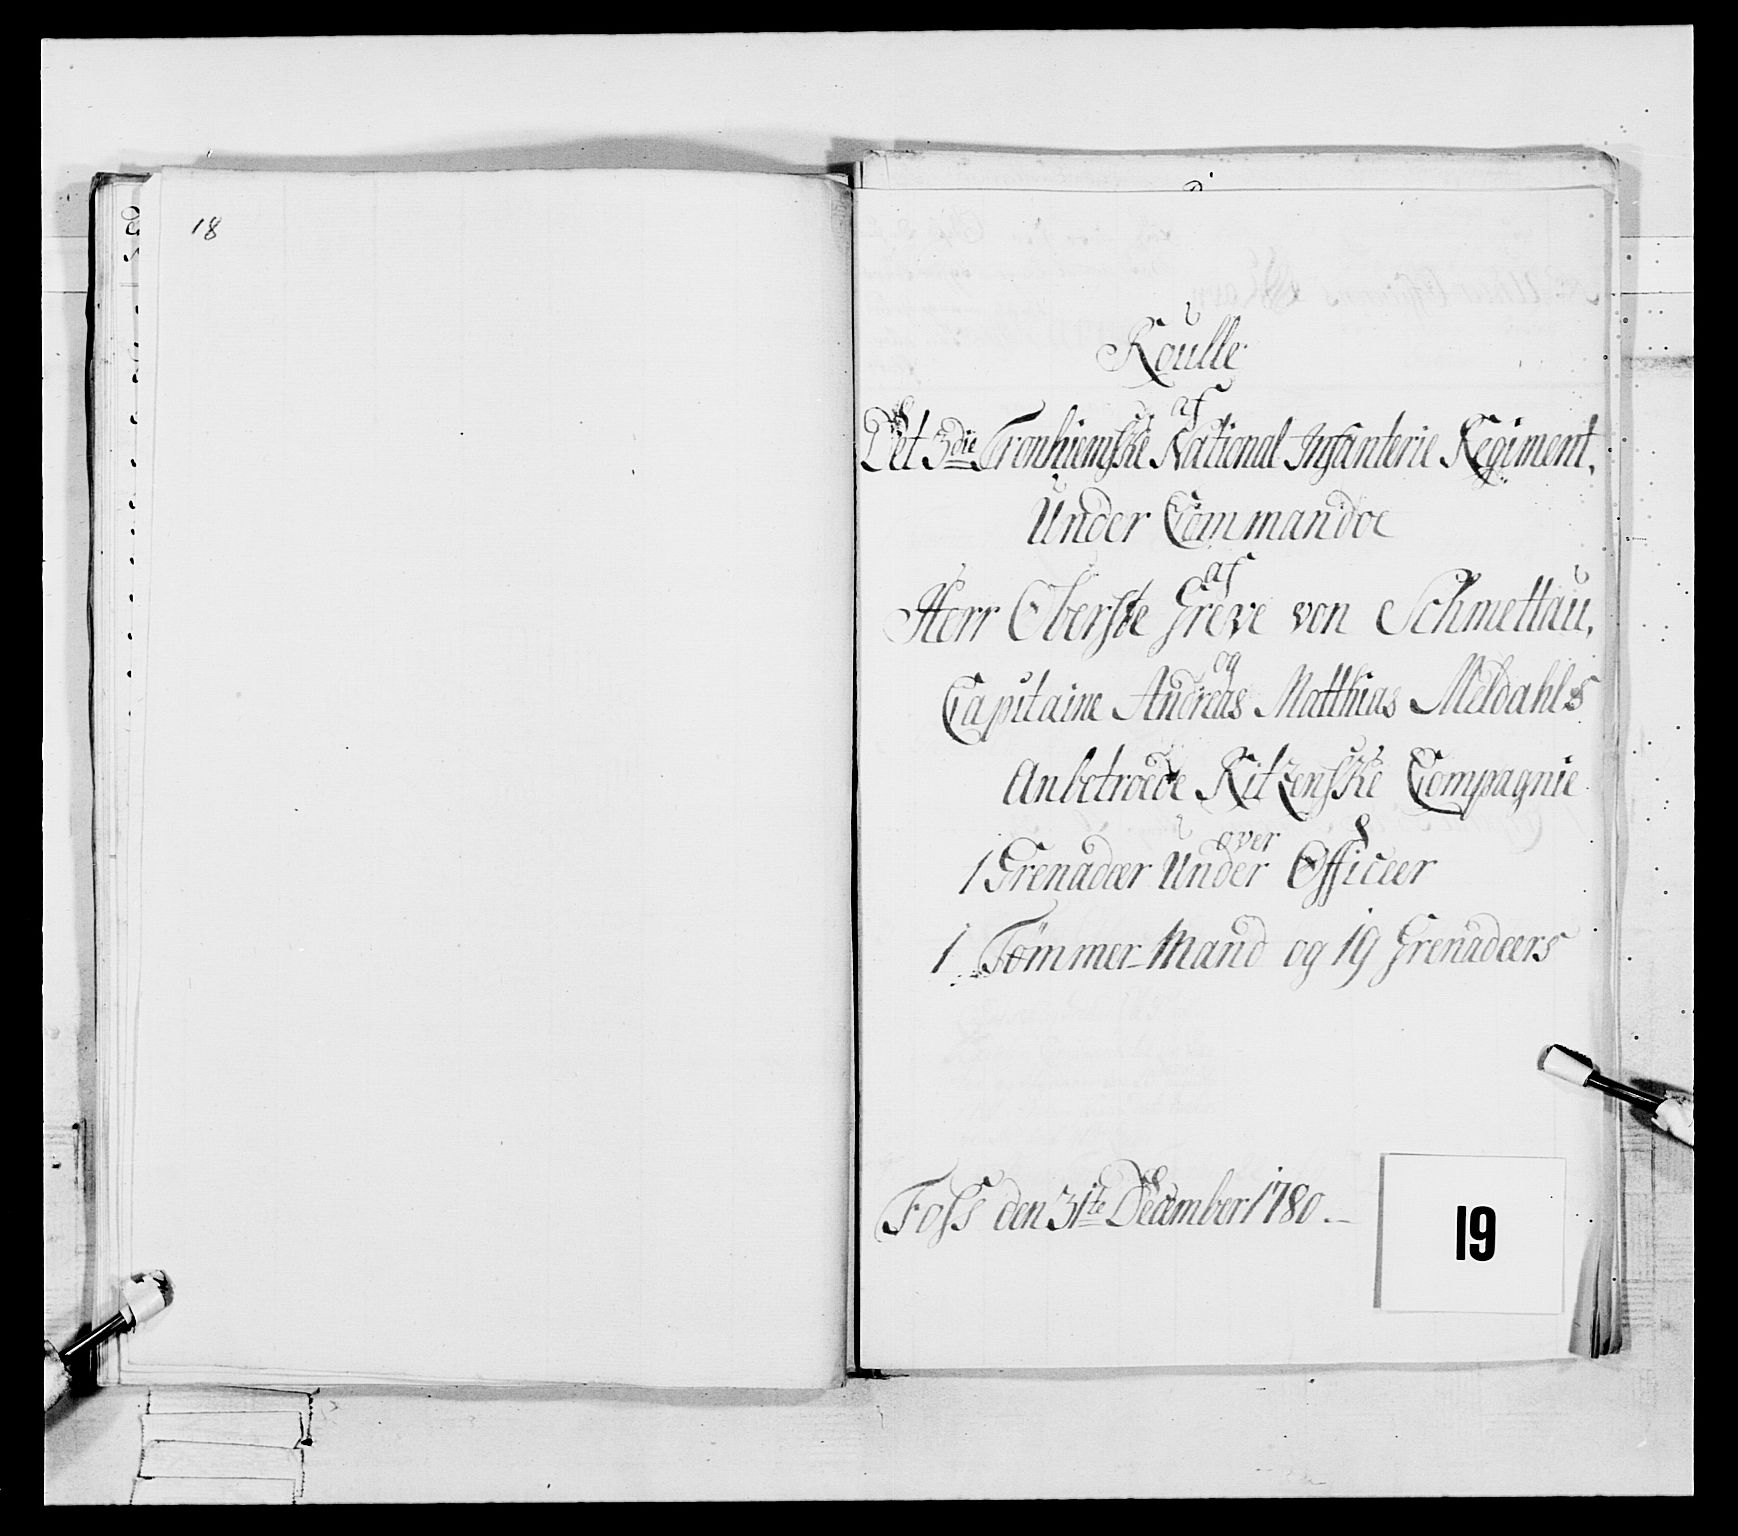 18
Roulle
af
Det 3die Tronhiemske National Infanterie Regiment,
Under Commandoe
af
Herr Oberste Greve von Schmettau,
og
Capitaine Andreas Matthias Meldahls
Anbetroede Kitzenske Compagnie
over
1 Grenadeer Under Officeer
1 Tømmer-Mand og 19 Grenadeers
Foss den 31te December 1780.-
19